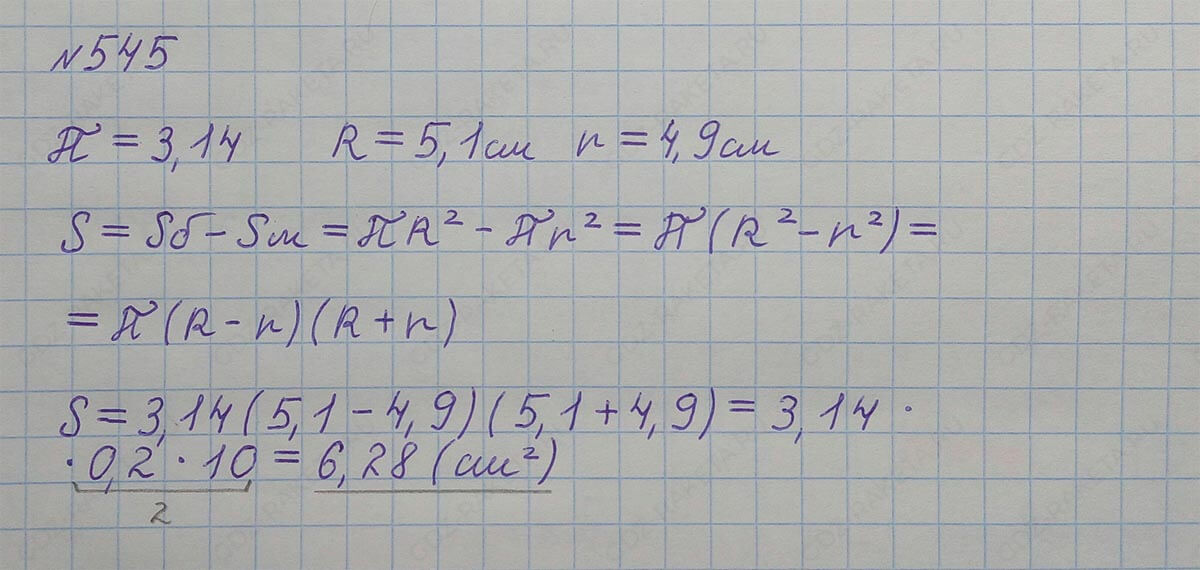 №545
π = 3,14 R = 5,1см r = 4,9см
S = Sб - Sм = πR² - πr² = π(R² - r²) =
= π(R - r)(R + r)
S = 3,14(5,1 - 4,9)(5,1 + 4,9) = 3,14 ·
· 0,2 · 10 = 6,28 (см²)
2